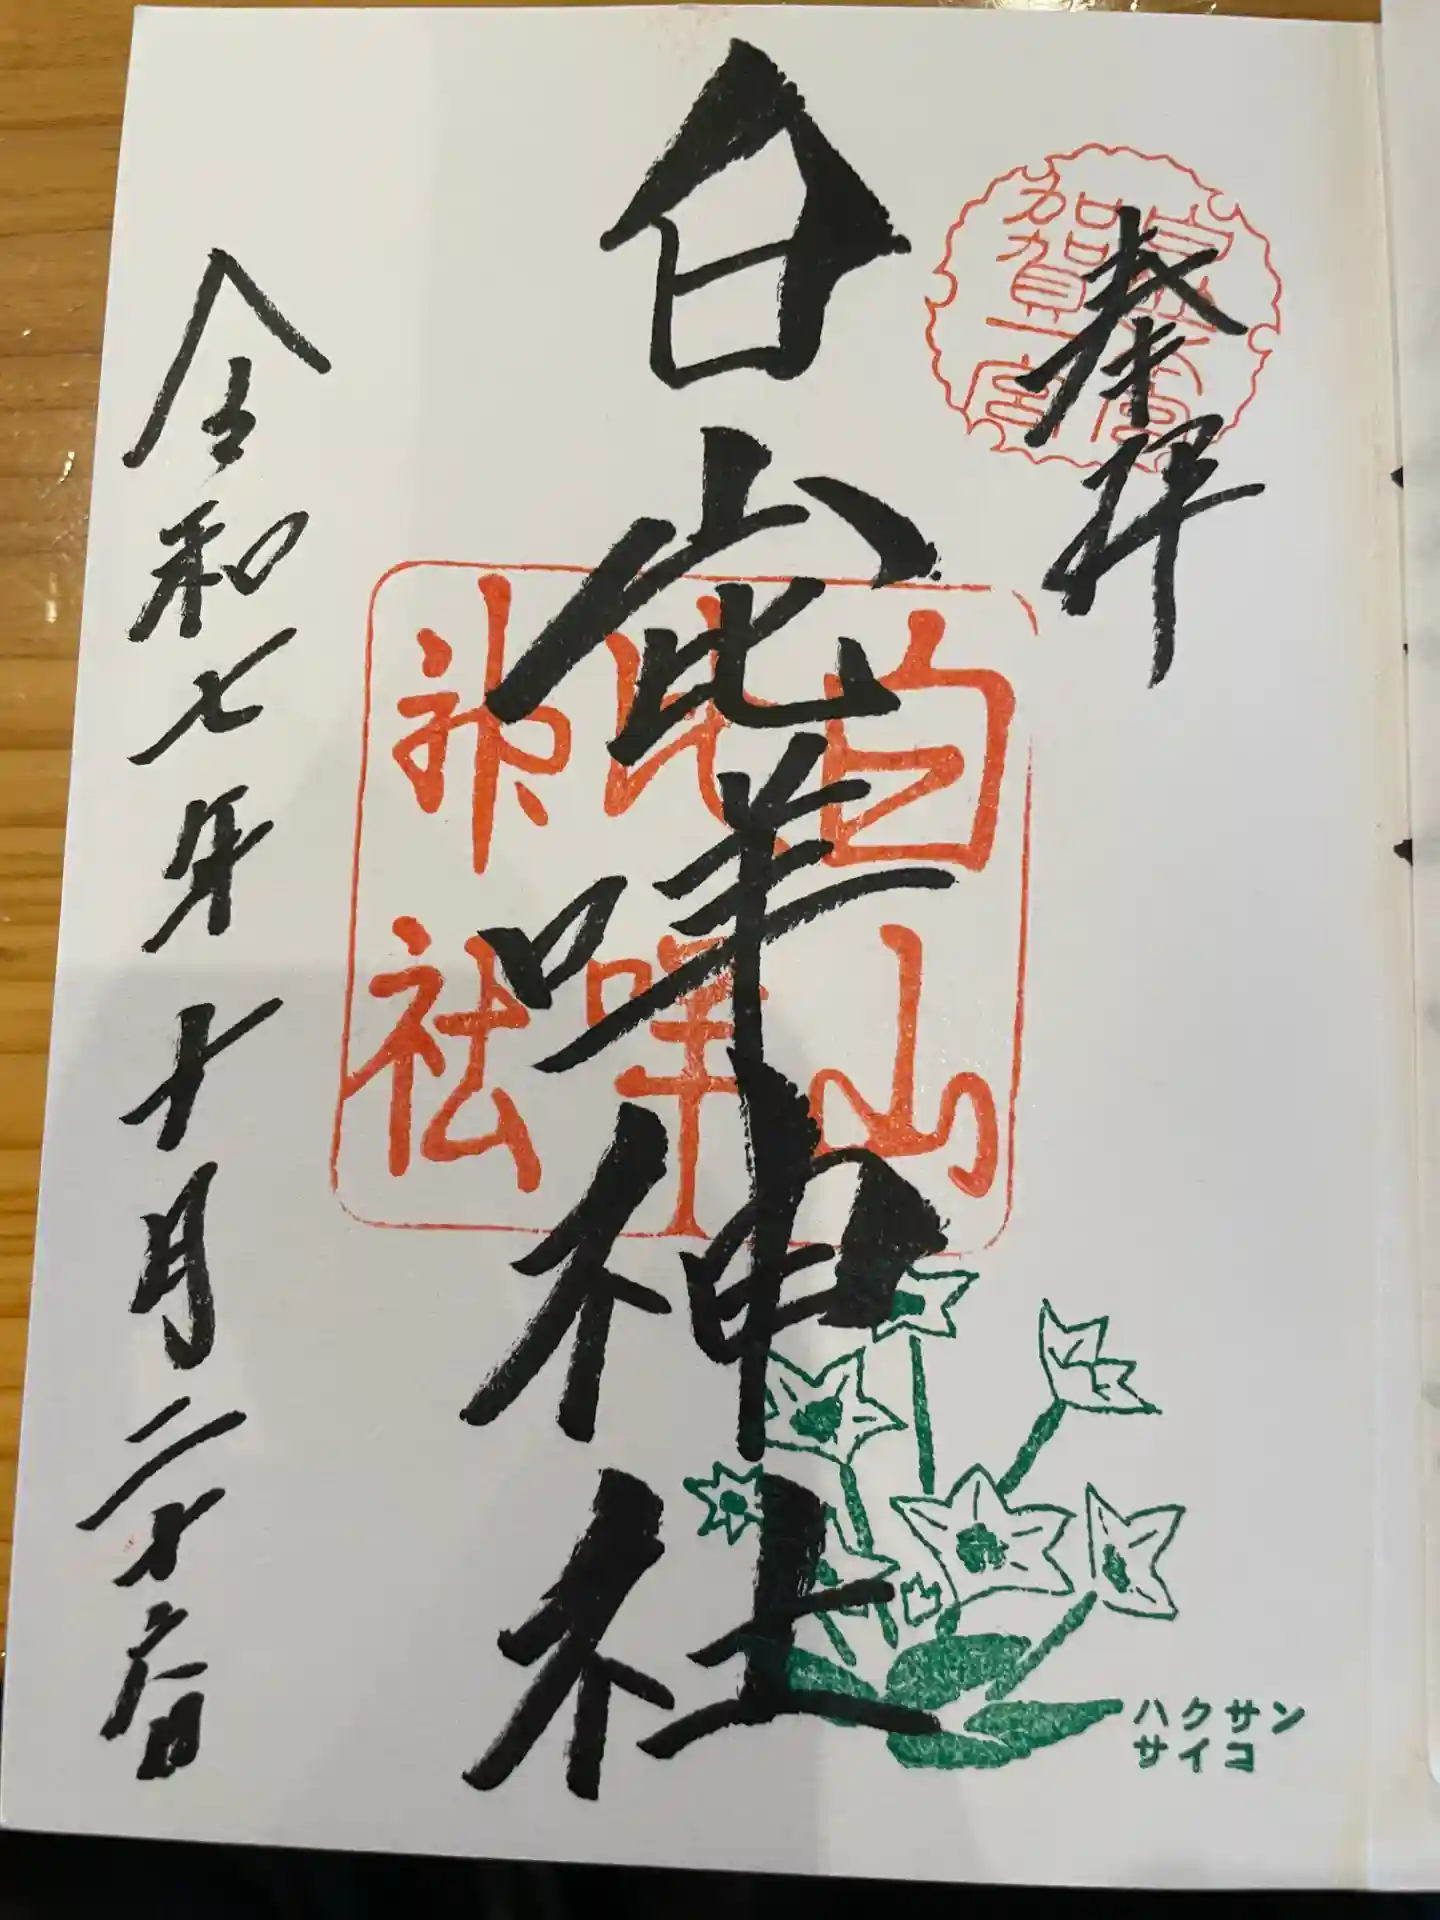 奉拝
加賀一宮
白山比咩神社
白山
比咩
神社
令和七年十月二十六日
ハクサン
サイコ